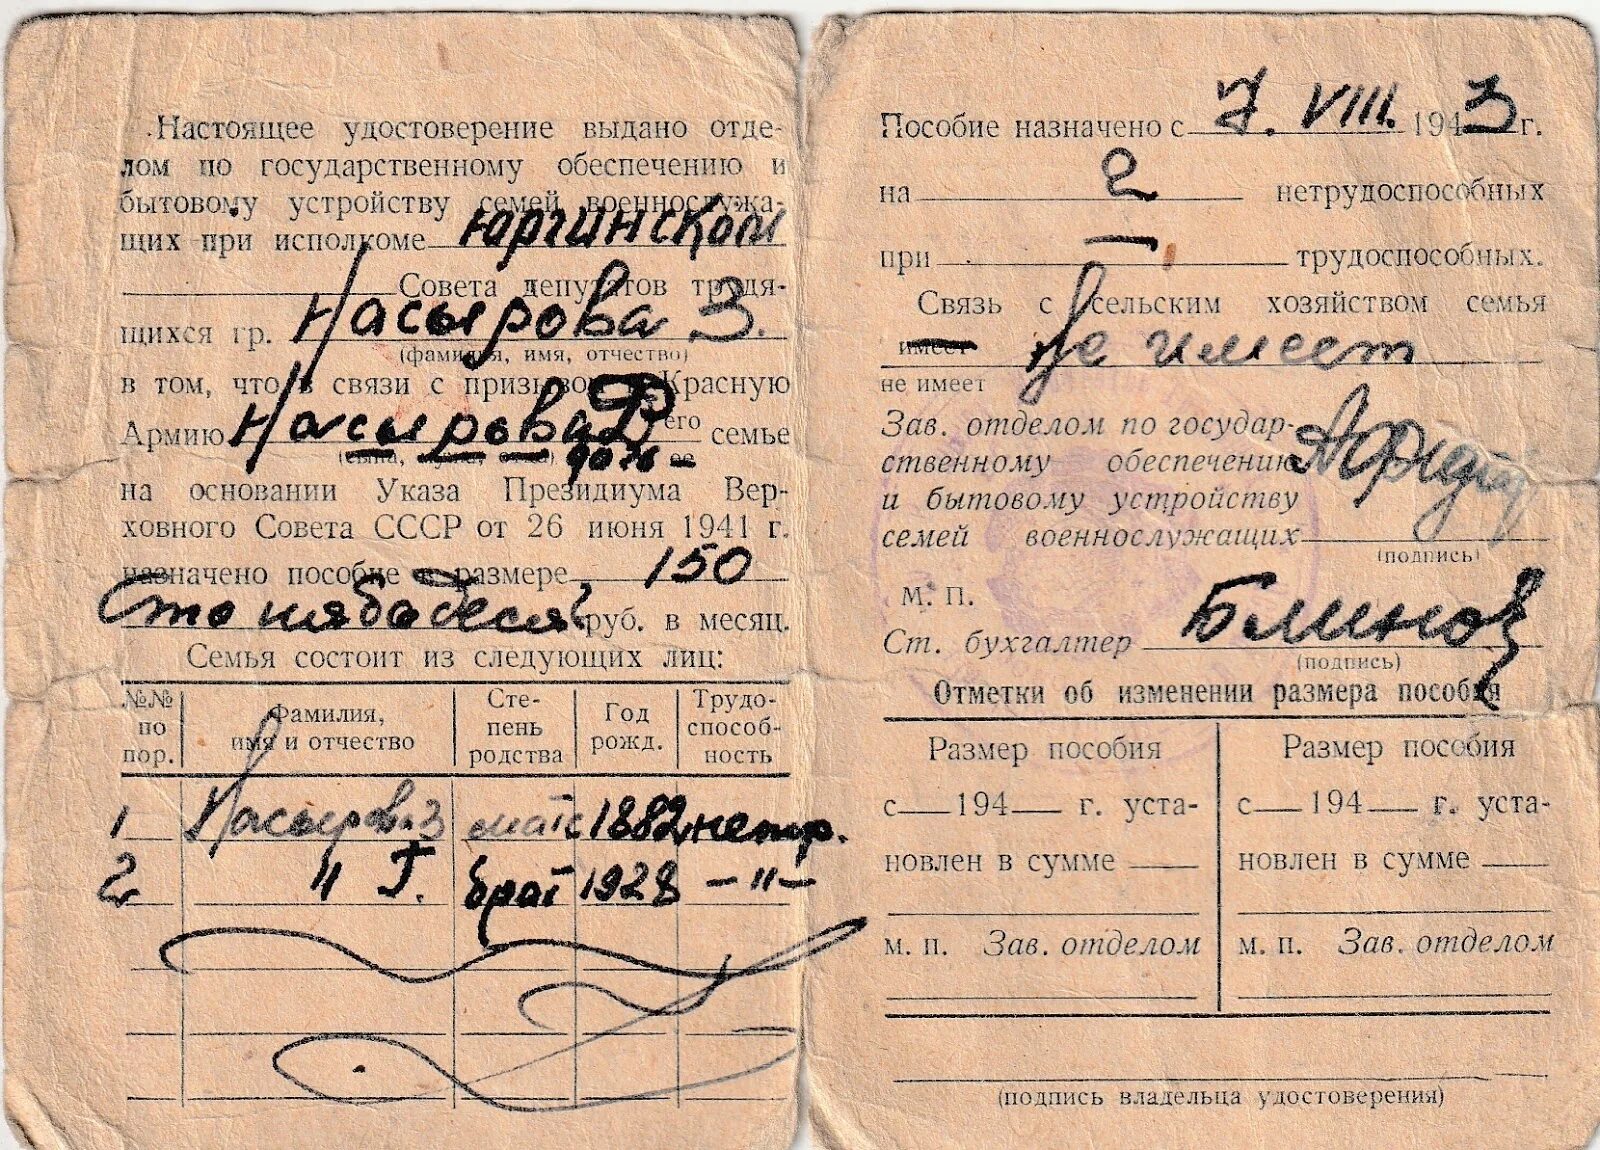 Настоящее удостоверение выдано отде-
лом по государственному обеспечению и
бытовому устройству семей военнослужа-
щих при исполкоме Юргинском
Совета депутатов трудя-
щихся гр. Насырова З.
(фамилия, имя, отчество)
в том, что в связи с призывом в Красную
Армию Насырова его семье
на основании Указа Президиума Вер-
ховного Совета СССР от 26 июня 1941 г.
назначено пособие в размере 150
Сто пятьдесят руб. в месяц.
Семья состоит из следующих лиц:
№№ по пор. Фамилия, имя и отчество Сте-пень родства Год рожд. Трудо-способ-ность
1 Насырова З мать 1882 нетр.
2 " Г. брат 1928 –"–
Пособие назначено с 7. VIII. 1943 г.
на 2 нетрудоспособных
при — трудоспособных.
Связь с сельским хозяйством семья
имеет не имеет
не имеет
Зав. отделом по государ-
ственному обеспечению
и бытовому устройству
семей военнослужащих
(подпись)
М. П.
Ст. бухгалтер Блинов
(подпись)
Отметки об изменении размера пособия
Размер пособия
с 194 г. уста-
новлен в сумме
м. п. Зав. отделом
Размер пособия
с 194 г. уста-
новлен в сумме
м. п. Зав. отделом
(подпись владельца удостоверения)